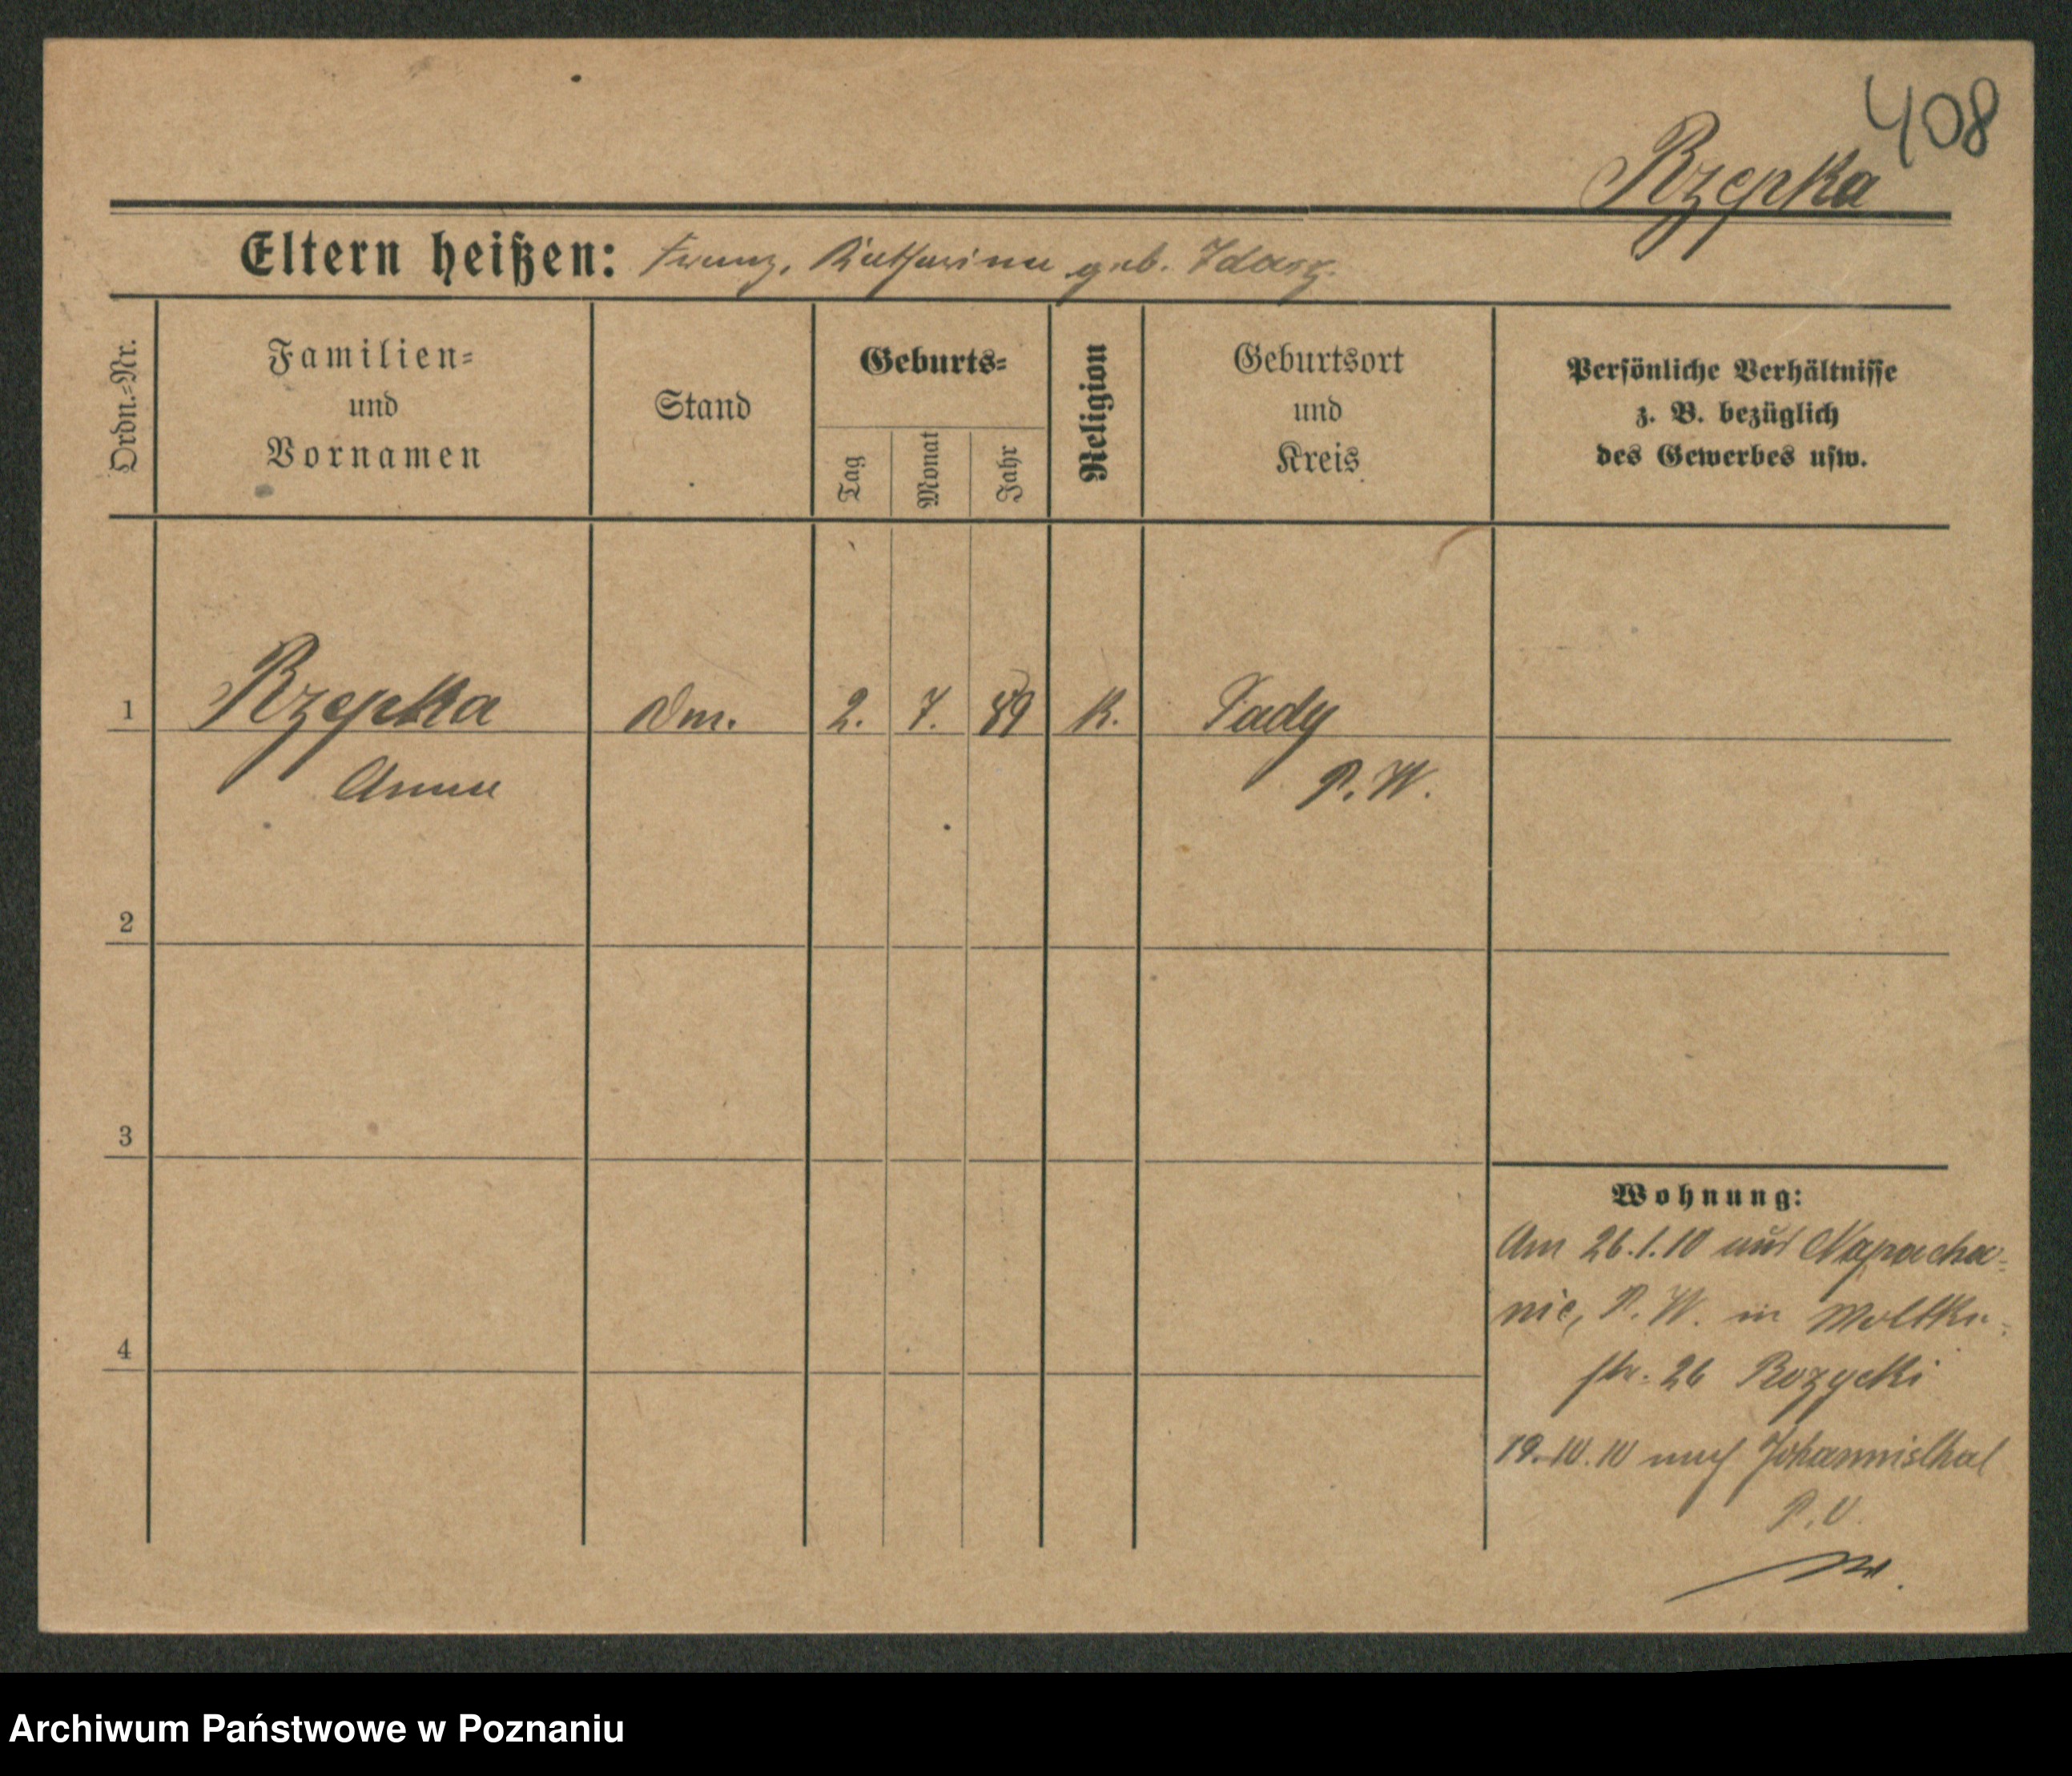 408
Rzepka
Eltern heißen: Franz, Katharina geb. Idasz.
Ordn.-Nr.
Familien-
und
Vornamen
Stand
Geburts-
Tag
Monat
Jahr
Religion
Geburtsort
und
Kreis
Persönliche Verhältnisse
z. B. bezüglich
des Gewerbes usw.
1 Rzepka Dm. 2. 7. 89 K. Sady
Anna P. W.
2
3
4
Wohnung:
Am 26.1.10 aus Napacha=
nie, P. W. in Moltke=
str. 26 Rozycki
19.10.10 nach Johannisthal
P. O.
Archiwum Państwowe w Poznaniu